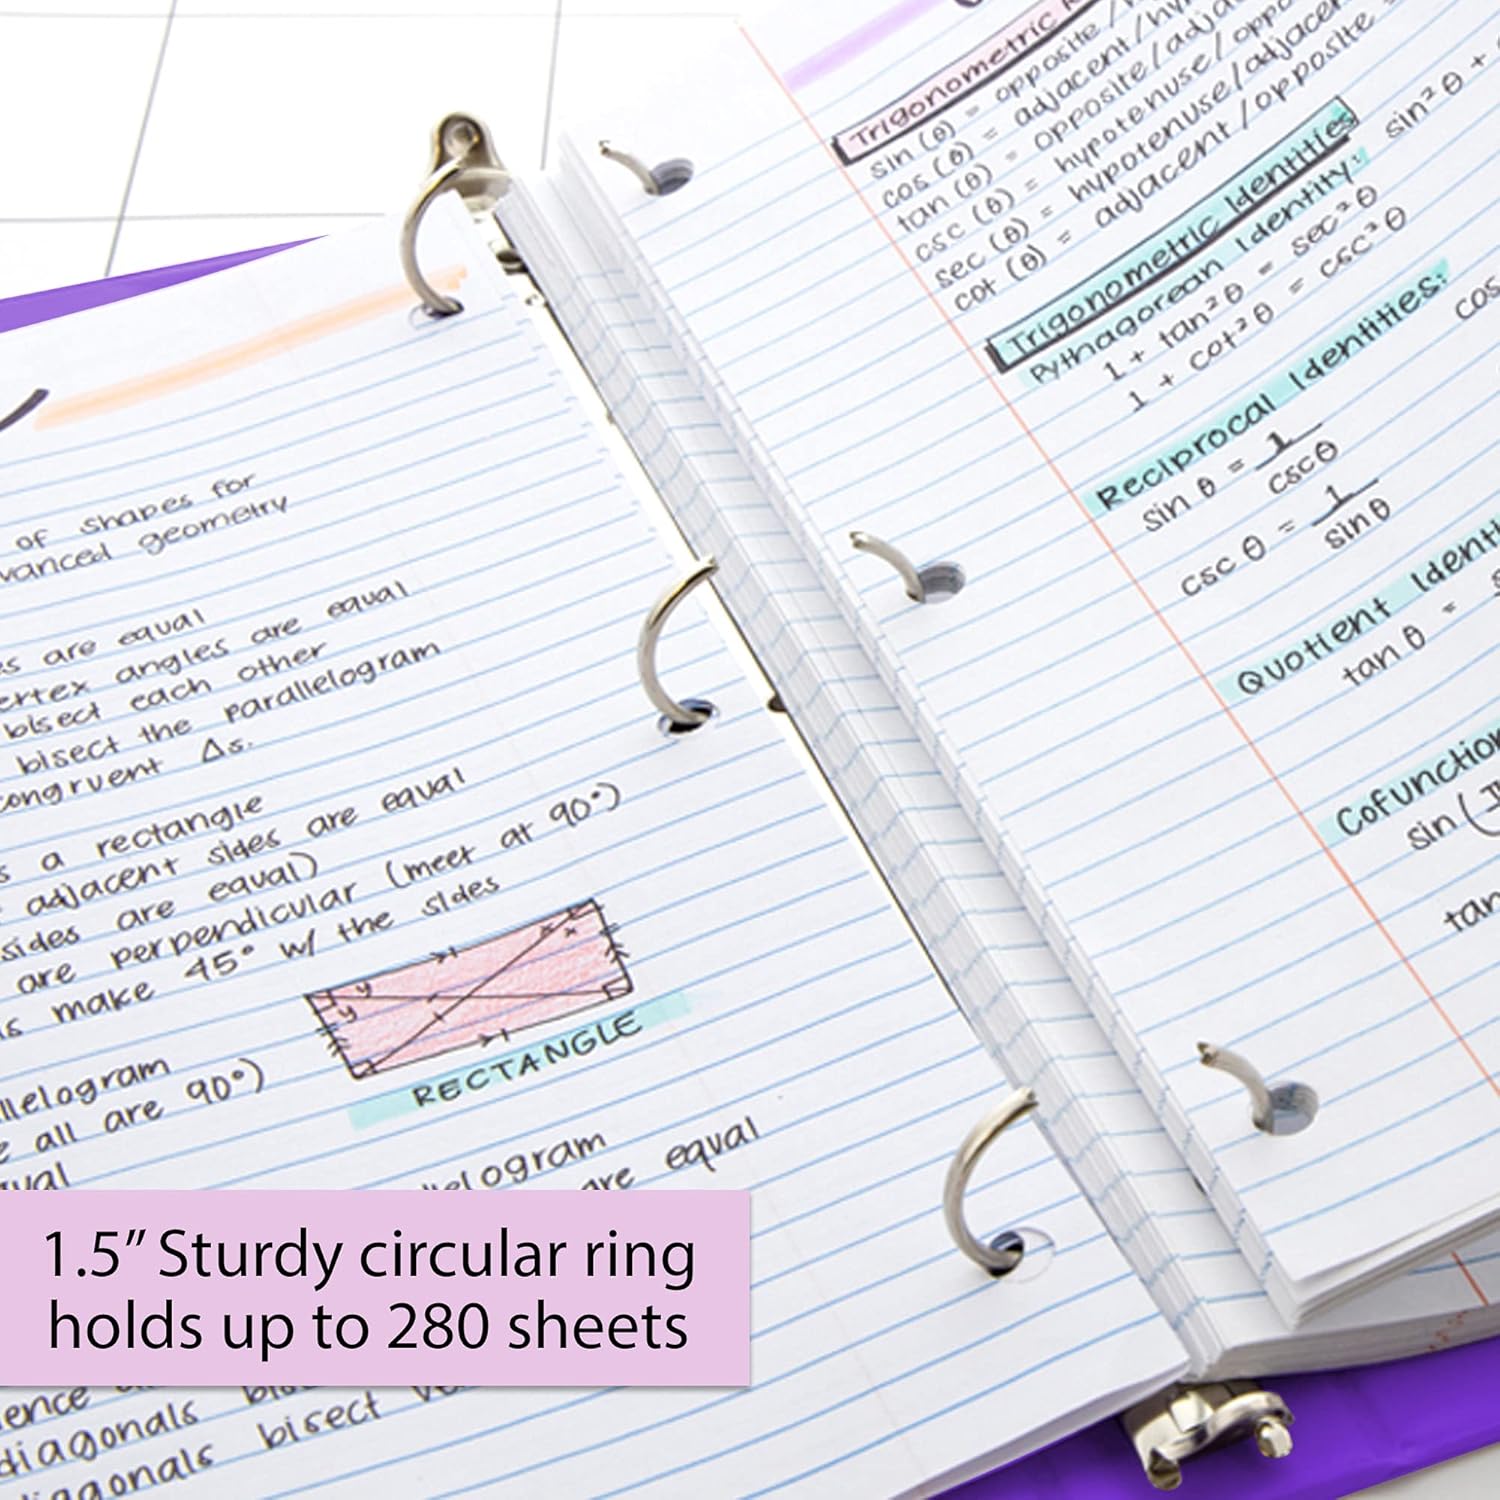 of shapes for
vanced geometry
es are equal
ertex angles are equal
bisect each other
bisect the parallelogram
congruent Δs.
s a rectangle
adjacent sides are equal
sides are equal)
are perpendicular (meet at 90°)
s make 45° w/ the sides
RECTANGLE
llelogram
e all are 90°)
ual
llelogram
are equal
ence
diagonals
iagonals bisect
Trigonometric
sin (θ) = opposite /
cos (θ) = adjacent / hy
tan (θ) = opposite / adja
csc (θ) = hypotenuse / oppo
sec (θ) = hypotenuse / adjacen
cot (θ) = adjacent / opposite
Trigonometric Identities
Pythagorean Identity: sin²θ +
1 + tan²θ = sec²θ
1 + cot²θ = csc²θ
Reciprocal Identities:
sin θ = 1/cscθ
cos
csc θ = 1/sinθ
Quotient Identi
tan θ =
Cofunction
sin (
tan
1.5” Sturdy circular ring
holds up to 280 sheets